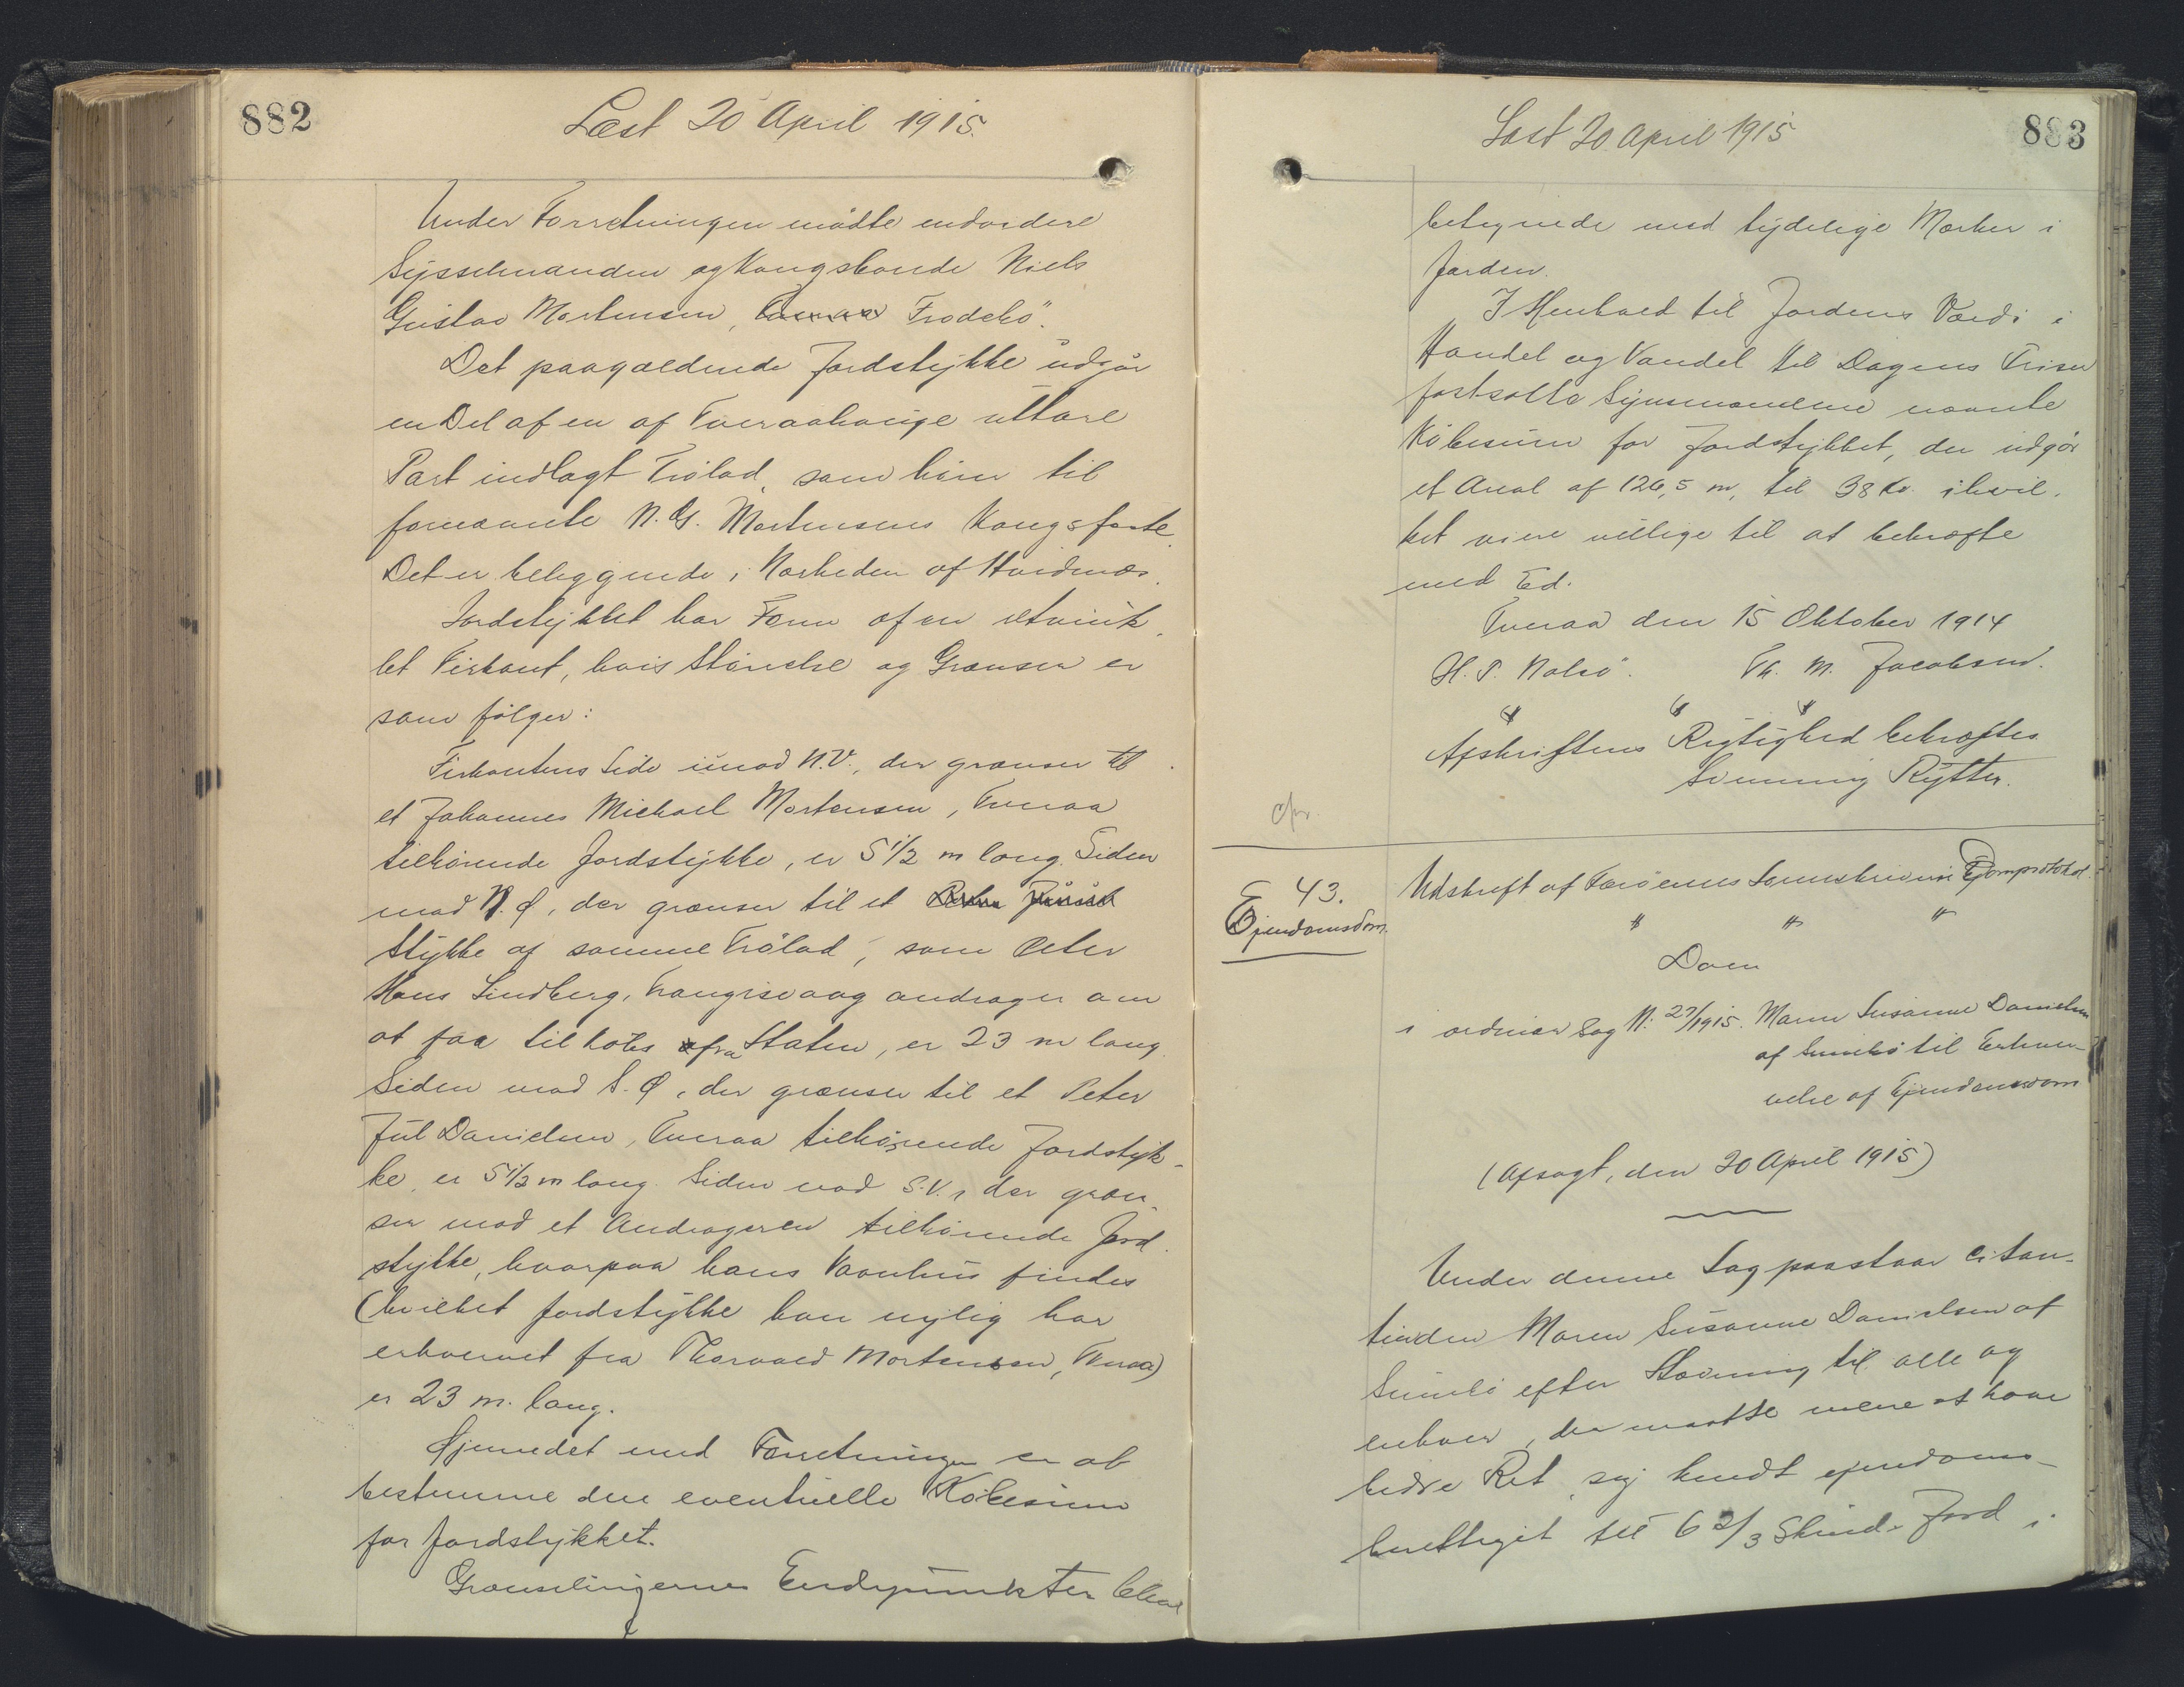 882
Læst 20 April 1915.
Under Forretningen mødte endvidere
Sysselmanden og Kongsbonde Niels
Gustav Mortensen, Frodebø.
Det paagældende Jordstykke udgør
en Del af en af Tveraahauge uttare
Part indlagt Trølad, som hører til
fornævnte N. G. Mortensens Kongsfæste.
Det er beliggende i Nærheden af Hvidenæs.
Jordstykket har Form af en retvink-
let Firkant, hvis Størrelse og Grænser er
som følger:
Firkantens Side imod N.V., der grænser til
et Johannes Michael Mortensen, Tveraa
tilhørende Jordstykke, er 5 1/2 m lang. Siden
mod N. Ø, der grænser til et
Stykke af samme Trølad, som Peter
Hans Lindberg, Trangisvaag andrager om
at faa tilkøbs fra Staten, er 23 m lang.
Siden mod S. Ø, der grænser til et Peter
Jul Danielsen, Tveraa tilhørende Jordstyk-
ke, er 5 1/2 m lang. Siden mod S.V., der græn-
ser mod et Andrageren tilhørende Jord-
stykke, hvorpaa hans Vaanhus findes
(hvilket Jordstykke han nylig har
erhvervet fra Thorvald Mortensen, Tveraa)
er 23 m. lang.
Øjemedet med Forretningen er at
bestemme den eventuelle Købesum
for Jordstykket.
Grænselinjernes Endepunkter blev
883
Læst 20 April 1915
betegnede med tydelige Mærker i
Jorden.
I Henhold til Jordens Værdi i
Handel og Vandel til Dagens Priser
fastsatte Synsmændene nævnte
Købesum for Jordstykket, der udgør
et Areal af 126,5 m, til 38 Kr. ihvil-
ket vi ere villige til at bekræfte
med Ed.
Tveraa den 15 Oktober 1914
H. P. Nolsø. Th. M. Jacobsen.
Afskriftens Rigtighed bekræftes
Svenning Rytter.
43.
Ejendomsdom.
Udskrift af Færøernes Sorenskriveri Domprotokol.
" " "
Dom
i ordinær Sag N: 27/1915. Maren Susanne Danielsen
af Sumbø til Erhver-
velse af Ejendomsdom
(Afsagt, den 20 April 1915)
Under denne Sag paastaar Citan-
tinden Maren Susanne Danielsen af
Sumbø efter Stævning til alle og
enhver, der maatte mene at have
bedre Ret, sig kendt ejendoms-
berettiget til 6 2/3 Skind Jord i